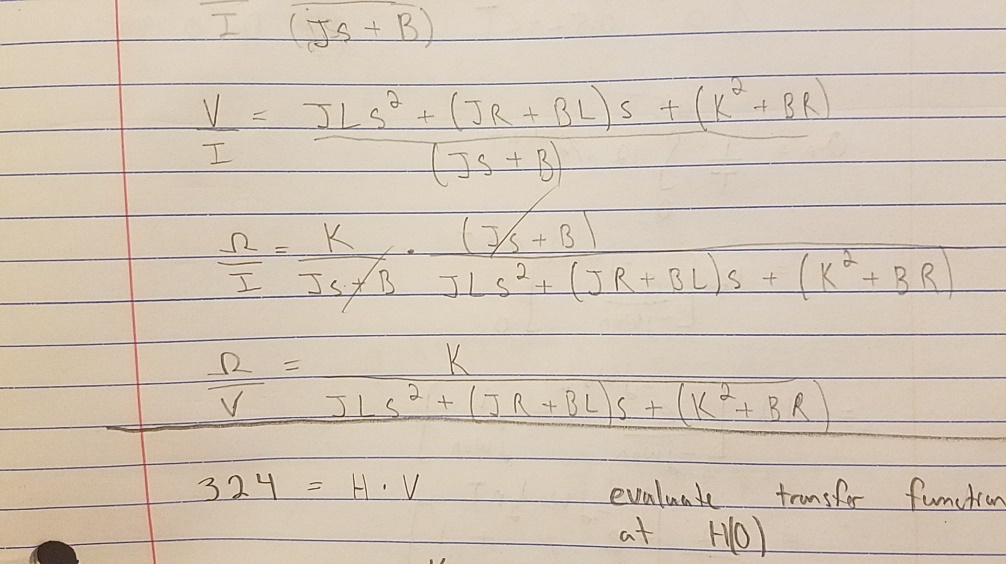 I (Js + B)
V/I = JLs² + (JR + BL)s + (K² + BR) / (Js + B)
Ω/I = K/(Js + B) · (Js + B)/(JLs² + (JR + BL)s + (K² + BR))
Ω/V = K / (JLs² + (JR + BL)s + (K² + BR))
324 = H · V evaluate transfer function
at H(0)